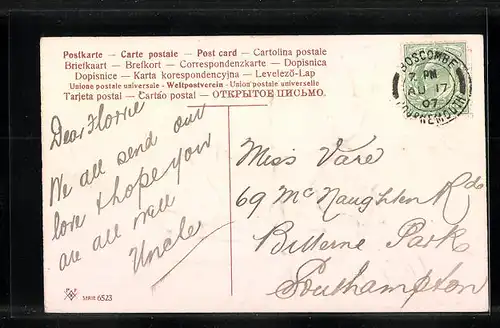 Postkarte – Carte postale – Post card – Cartolina postale
Briefkaart – Brefkort – Correspondenzkarte – Dopisnica
Dopisnice – Karta korespondencyjna – Levelező-Lap
Unione postale universale · Weltpostverein · Union postale universelle
Tarjeta postal – Cartão postal – ОТКРЫТОЕ ПИСЬМО.
BOSCOMBE
7 PM
AU 17
07
BOURNEMOUTH
Dear Florrie
We all send our
love & hope you
are all well
Uncle
Miss Vare
69 McNaughten Rd
Bitterne Park
Southampton
SERIE 6523